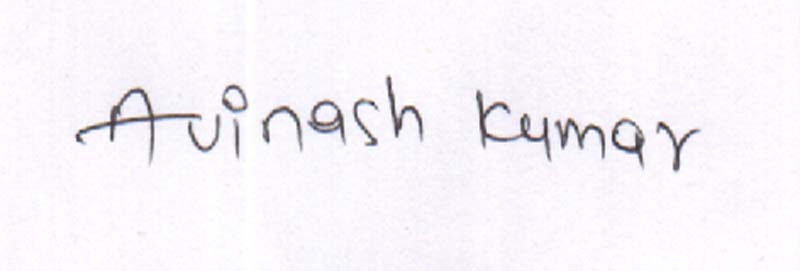 Avinash Kumar